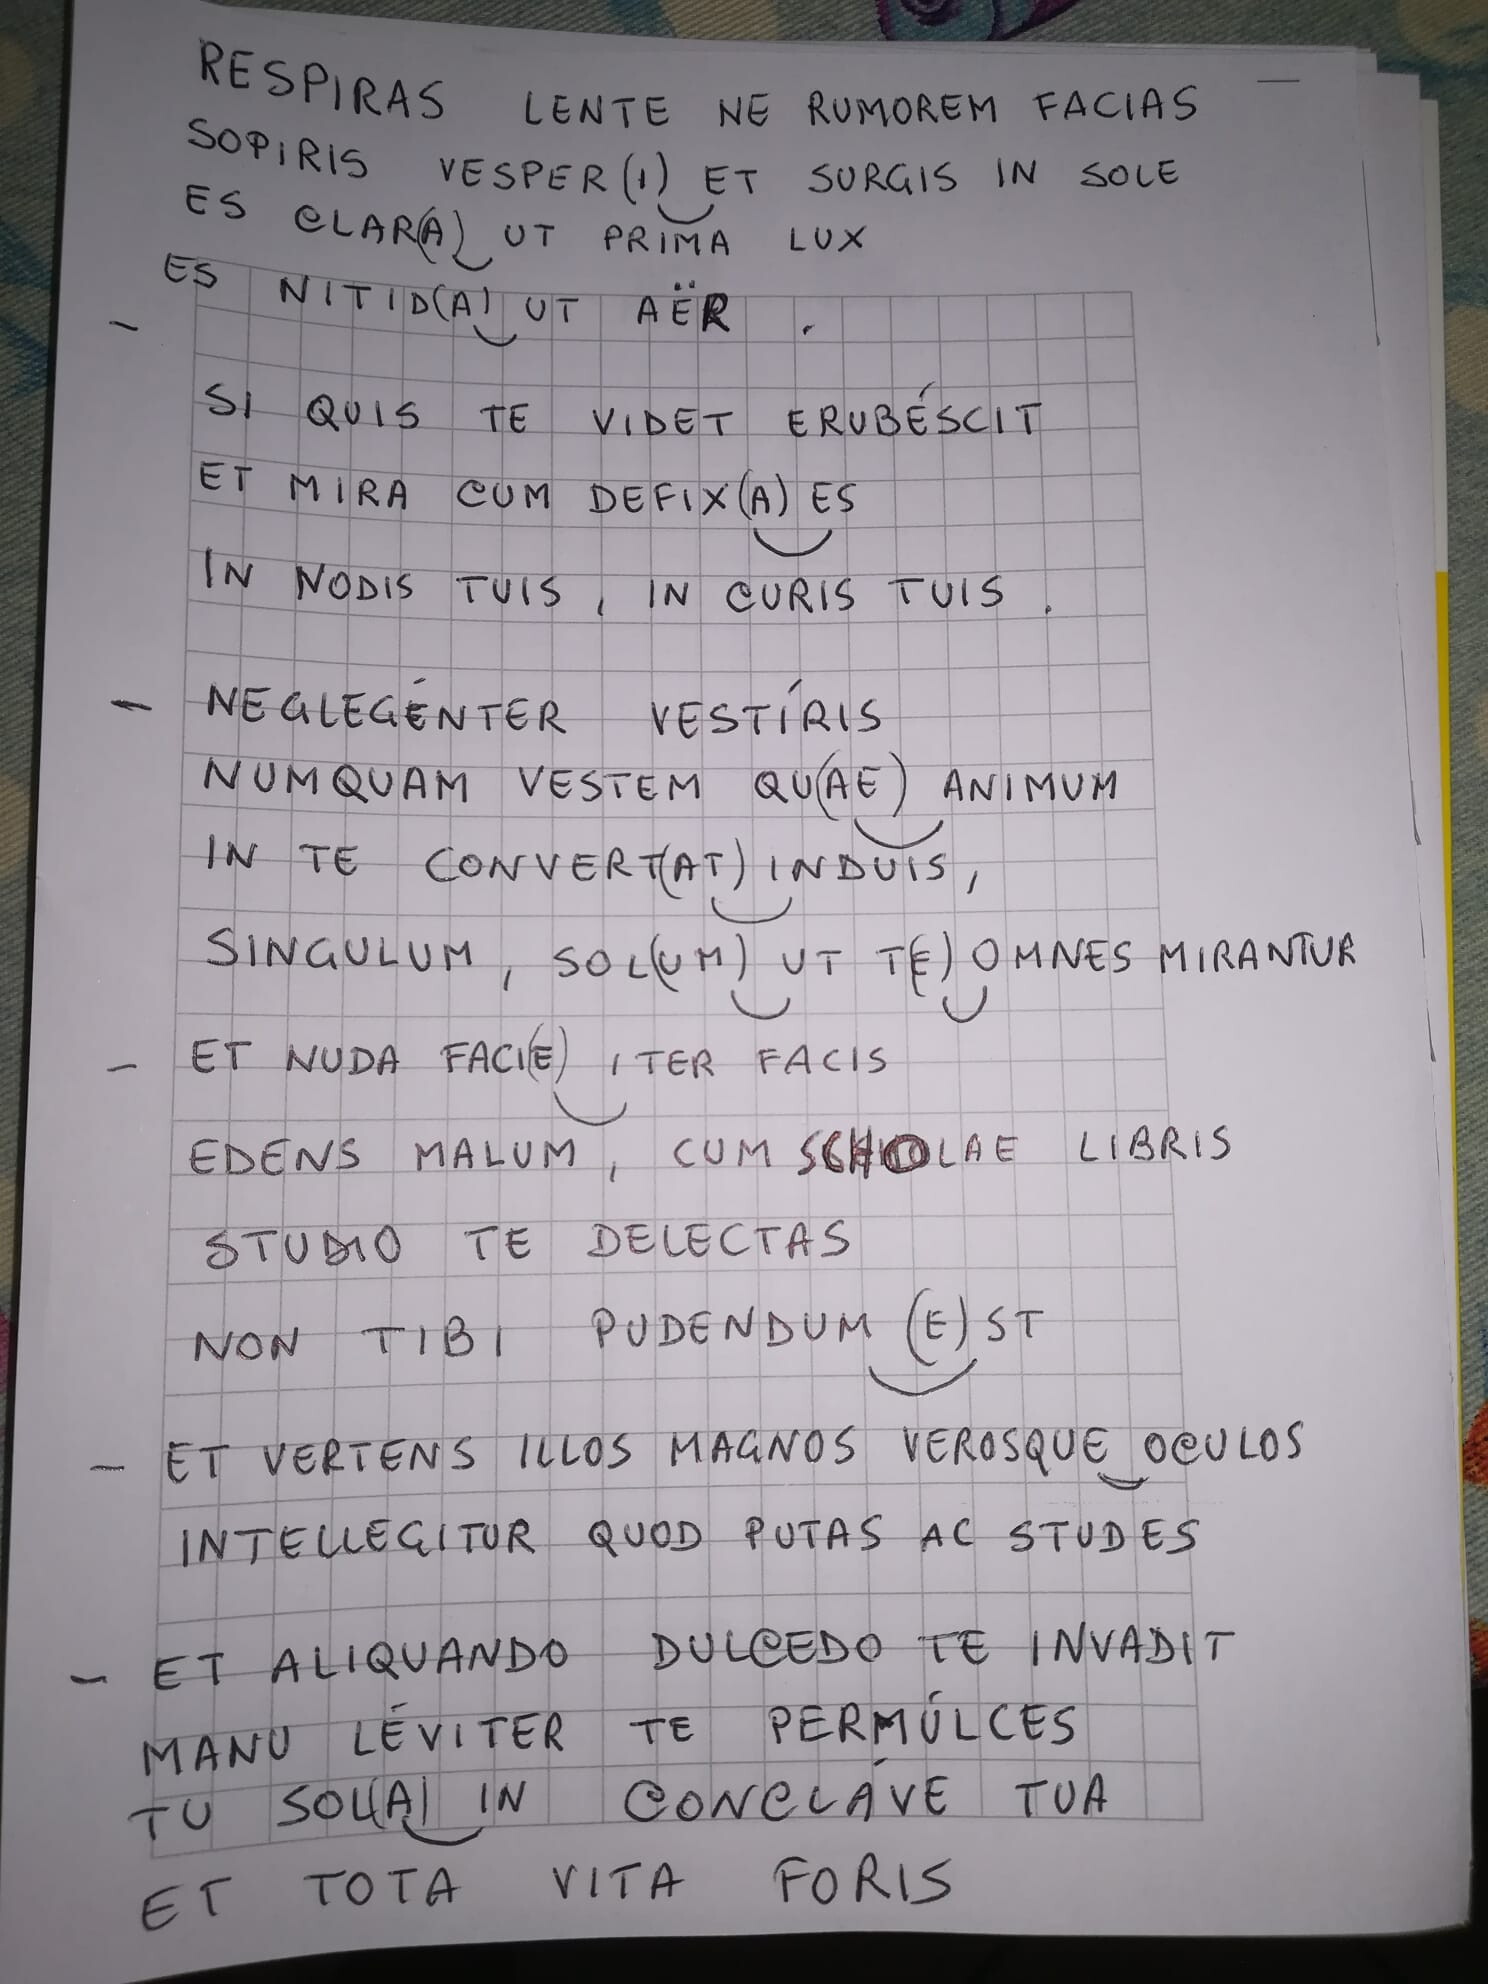 RESPIRAS LENTE NE RUMOREM FACIAS
SOPIRIS VESPER(I) ET SURGIS IN SOLE
ES CLAR(A) UT PRIMA LUX
ES NITID(A) UT AËR .
SI QUIS TE VIDET ERUBÉSCIT
ET MIRA CUM DEFIX(A) ES
IN NODIS TUIS, IN CURIS TUIS.
- NEGLEGÉNTER VESTÍRIS
NUMQUAM VESTEM QU(AE) ANIMUM
IN TE CONVERT(AT) INDUIS,
SINGULUM, SOL(UM) UT T(E) OMNES MIRANTUR
- ET NUDA FACI(E) ITER FACIS
EDENS MALUM, CUM SCHOLAE LIBRIS
STUDIO TE DELECTAS
NON TIBI PUDENDUM (E)ST
- ET VERTENS ILLOS MAGNOS VEROSQUE OCULOS
INTELLEGITUR QUOD PUTAS AC STUDES
- ET ALIQUANDO DULCEDO TE INVADIT
MANU LÉVITER TE PERMÚLCES
TU SOL(A) IN CONCLÁVE TUA
ET TOTA VITA FORIS